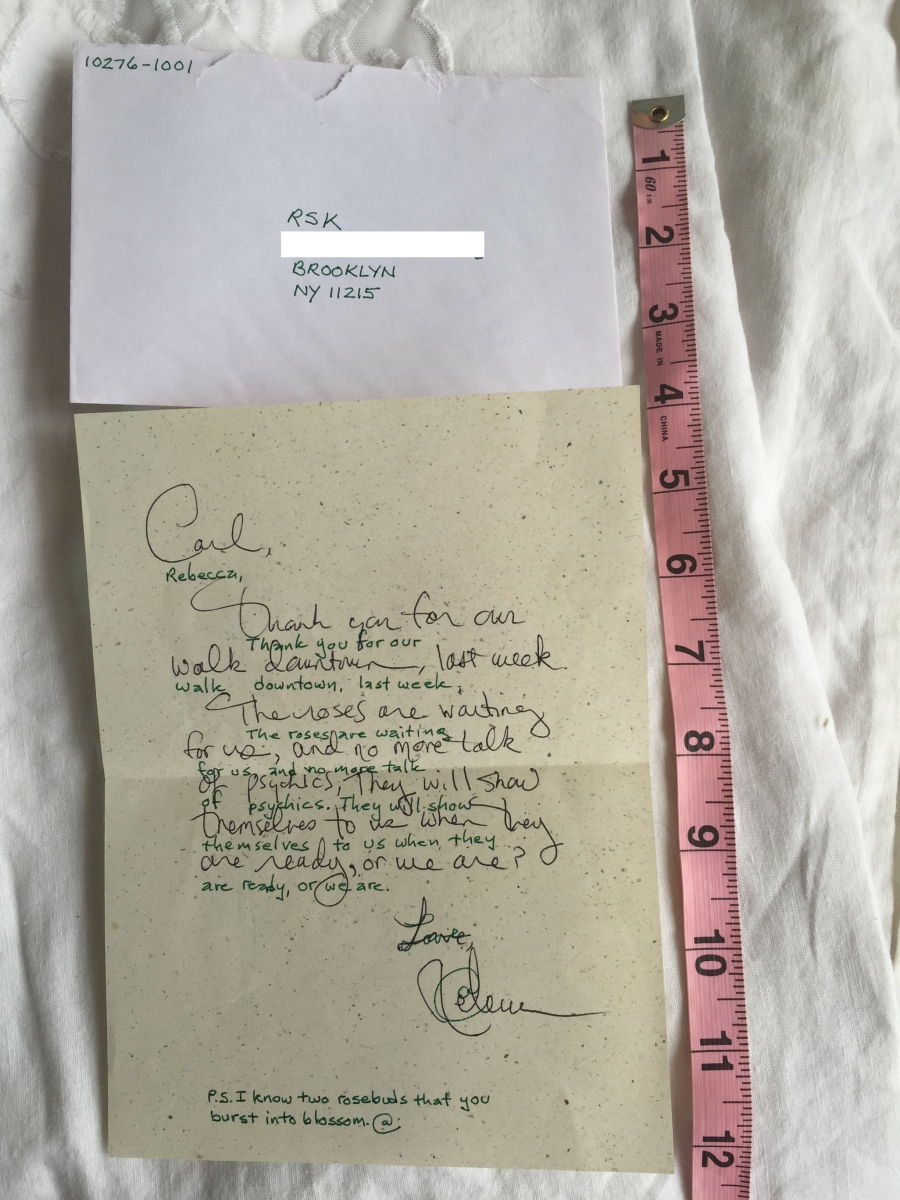 10276-1001
RSK
BROOKLYN
NY 11215
Carl,
Rebecca,
Thank you for our
Thank you for our
walk downtown, last week
walk downtown, last week.
The roses are waiting
The roses are waiting
for us, and no more talk
for us, and no more talk
of psychics, They will show
of psychics. They will show
themselves to us when they
themselves to us when they
are ready, or we are?
are ready, or we are.
Love,
P.S. I know two rosebuds that you
burst into blossom. @
1
60 in
2
3
MADE IN
4
CHINA
5
6
7
8
9
10
11
12